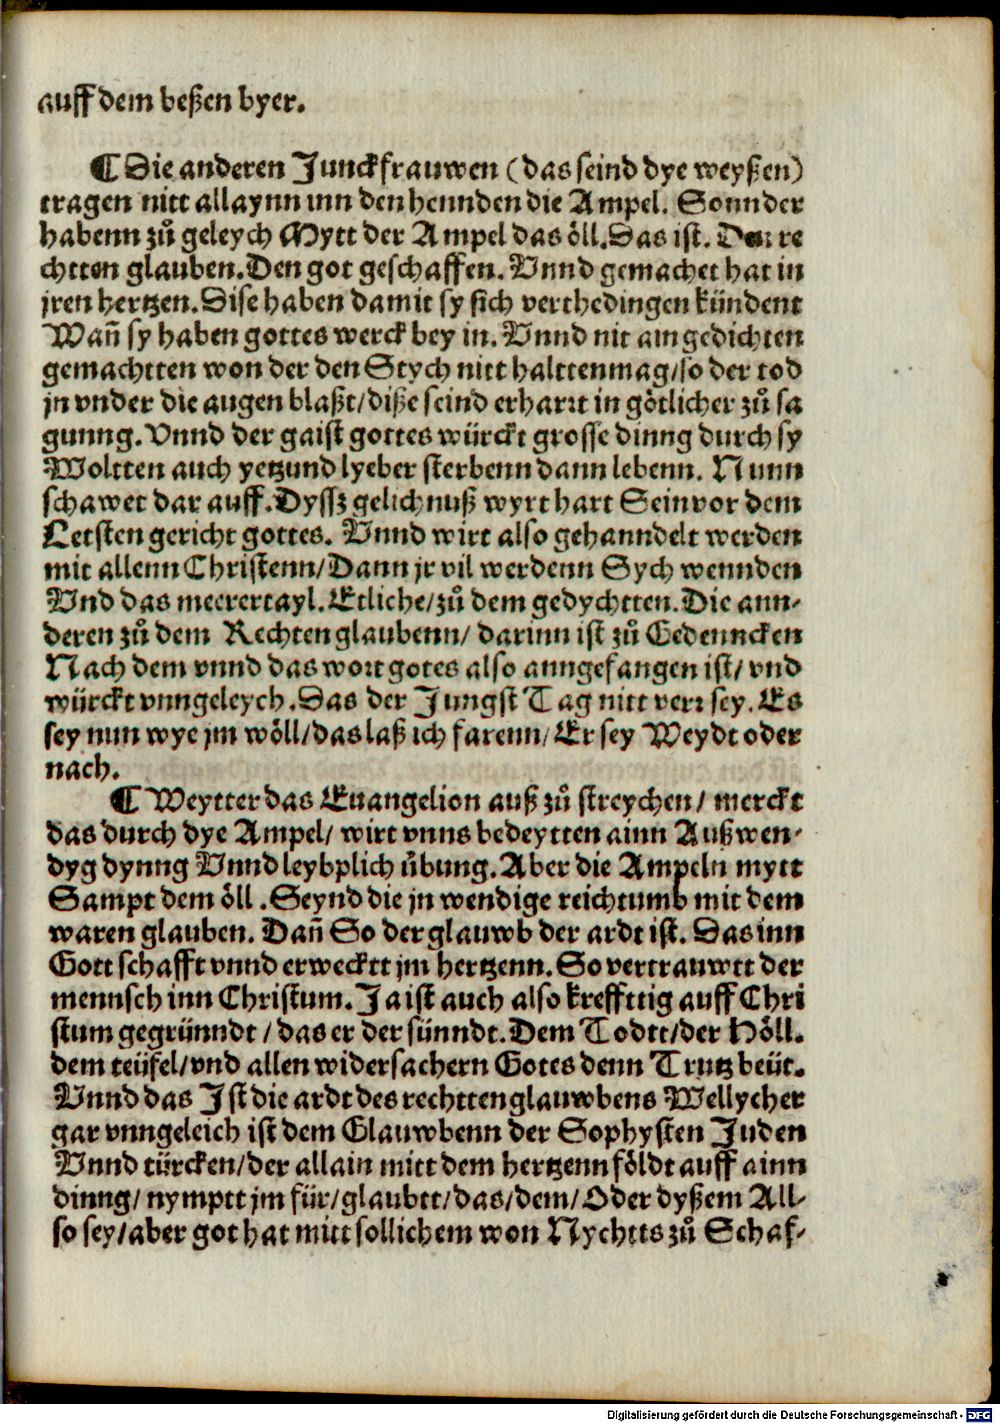 auff dem beßen byer.
¶ Die anderen Junckfrauwen (das seind dye weyßen)
tragen nitt allaynn inn den hennden die Ampel. Sonnder
habenn zů geleych Mytt der Ampel das öll. Das ist. Den re
chtten glauben. Den got geschaffen. Vnnd gemachet hat in
jren hertzen. Dise haben damit sy sich verthedingen kündent
Wañ sy haben gottes werck bey in. Vnnd nit ain gedichten
gemachtten won der den Stych nitt halttenmag/ so der tod
jn vnder die augen blaßt/ diße seind erhart in götlicher zů sa
gunng. Vnnd der gaist gottes würckt grosse dinng durch sy
Woltten auch yetzund lyeber sterbenn dann lebenn. Nunn
schawet dar auff. Dyssz gelichnuß wyrt hart Sein vor dem
Letsten gericht gottes. Vnnd wirt also gehanndelt werden
mit allenn Christenn/ Dann jr vil werdenn Sych wennden
Vnd das meerertayl. Etliche/ zů dem gedychtten. Die ann-
deren zů dem Rechten glaubenn/ darinn ist zů Gedenncken
Nach dem vnnd das wort gotes also anngefangen ist/ vnd
würckt vnngeleych. Das der Jungst Tag nitt verr sey. Es
sey nun wye jm wöll/ das laß ich farenn/ Er sey Weydt oder
nach.
¶ Weytter das Euangelion auß zů streychen/ merckt
das durch dye Ampel/ wirt vnns bedeytten ainn Außwen-
dyg dynng Vnnd leybplich übung. Aber die Ampeln mytt
Sampt dem öll. Seynd die jn wendige reichtumb mit dem
waren glauben. Dañ So der glauwb der ardt ist. Das inn
Gott schafft vnnd erwecktt jm hertzenn. So vertrauwtt der
mennsch inn Christum. Ja ist auch also krefftig auff Chri
stum gegrünndt/ das er der sünndt. Dem Todtt/ der Höll.
dem teüfel/ vnd allen widersachern Gotes denn Trutz beüt.
Vnnd das Ist die ardt des rechttenglauwbens Wellycher
gar vnngeleich ist dem Glauwbenn der Sophysten Juden
Vnnd türcken/ der allain mitt dem hertzenn földt auff ainn
dinng/ nymptt jm für/ glaubtt/ das/ dem/ Oder dyßem All-
so sey/ aber got hat mitt sollichem won Nychtts zů Schaf-
Digitalisierung gefördert durch die Deutsche Forschungsgemeinschaft - DFG